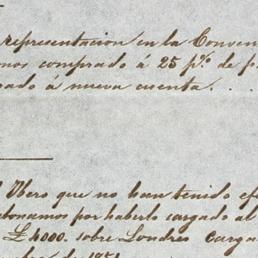 representacion en la Conven
mos comprado á 25 p%. de p.
ado á nueva cuenta. . .
Obero que no han tenido efe
abonamos por haberlo cargado al
£4000. sobre Londres carga
de 1851